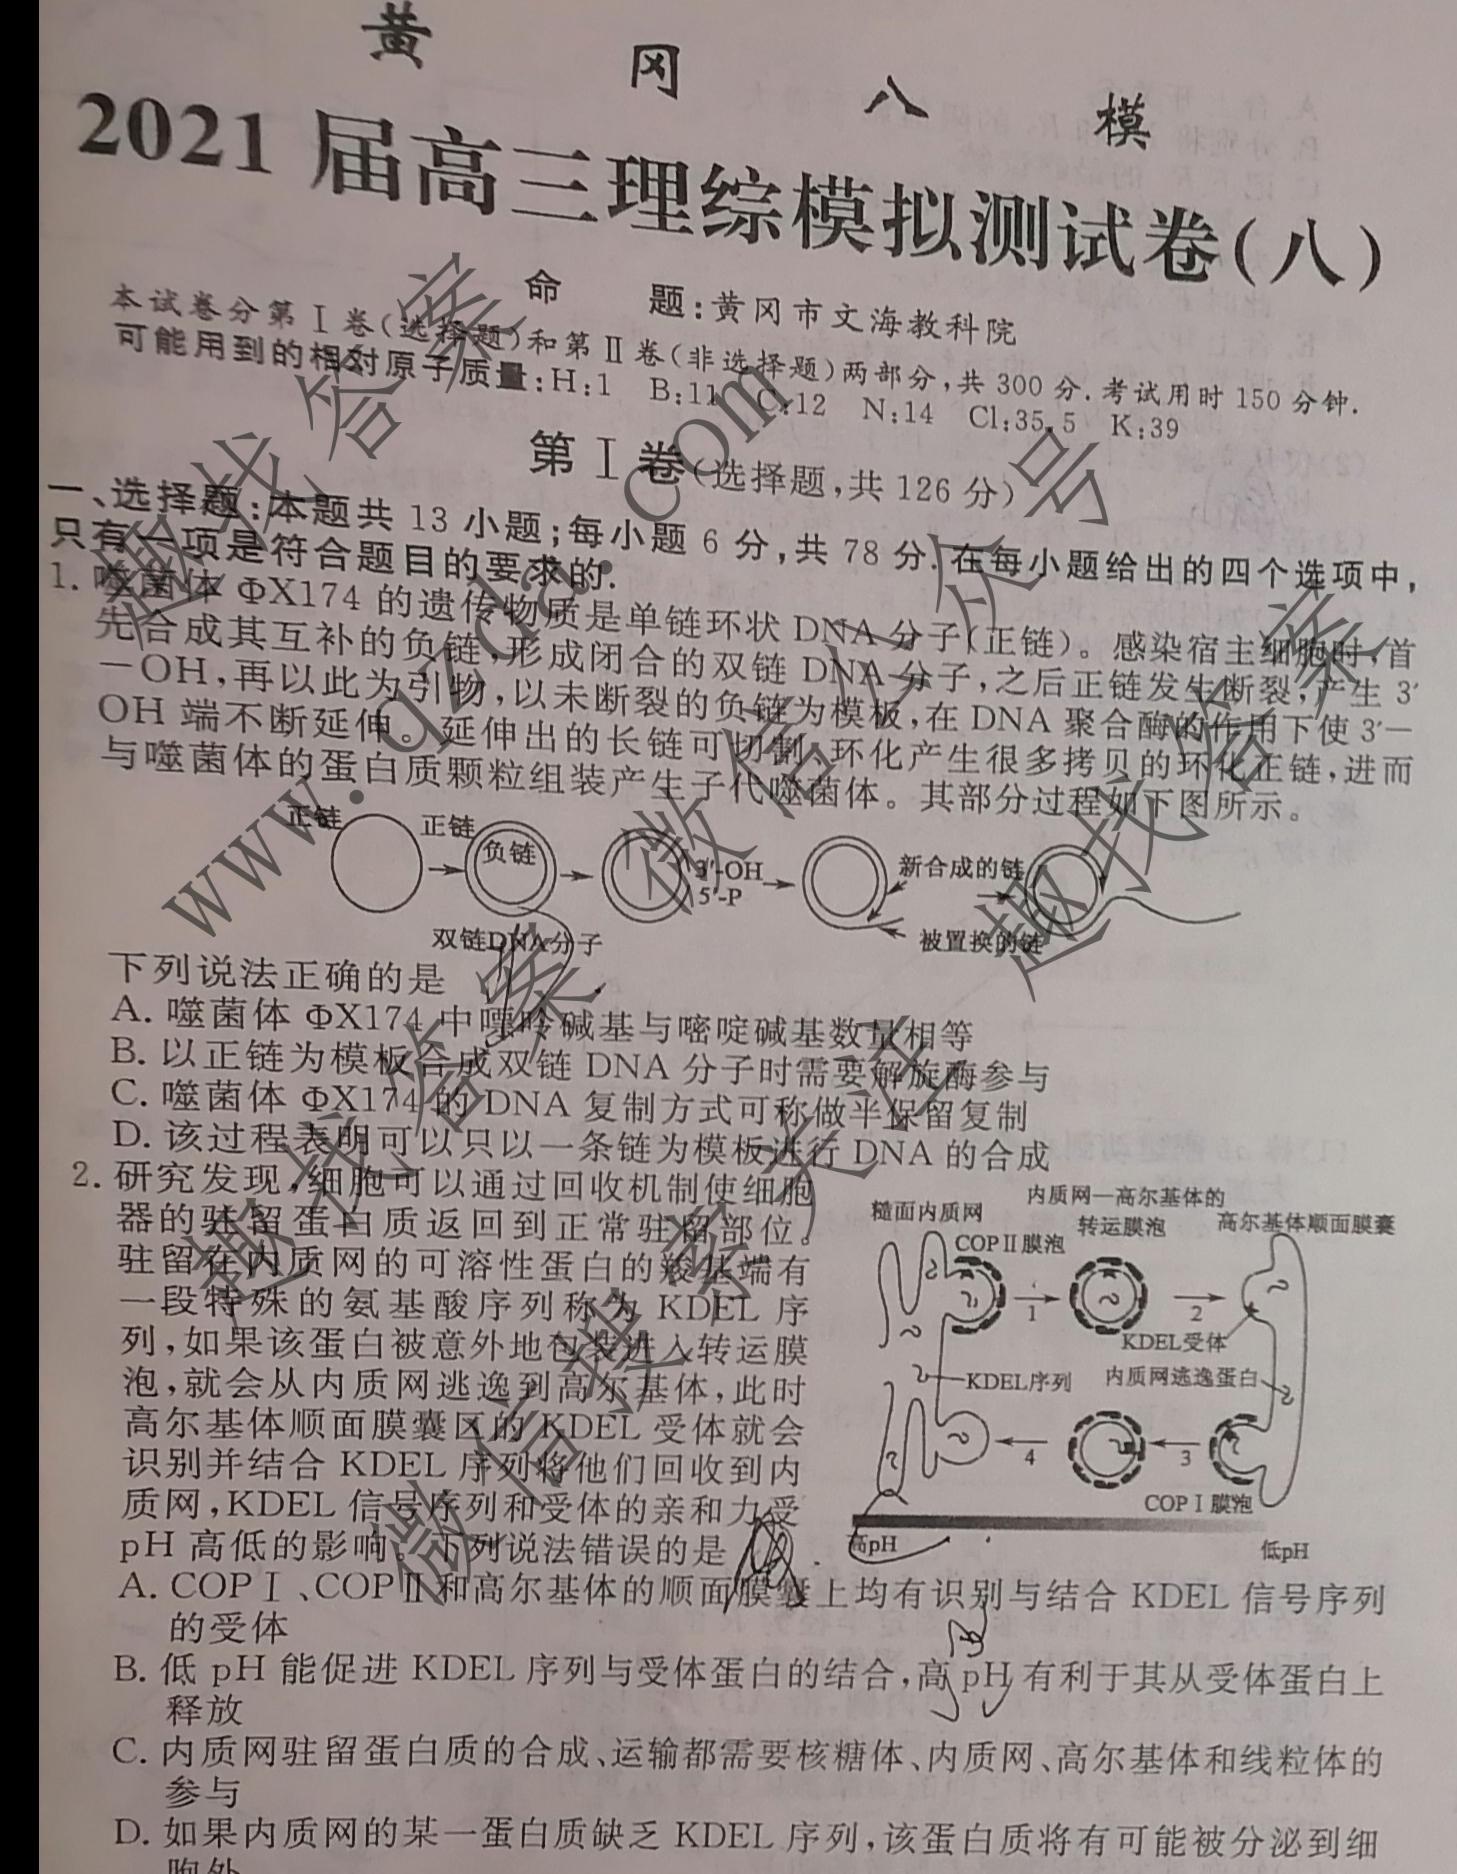 黄 冈 八 模
2021 届高三理综模拟测试卷(八)
命 题:黄冈市文海教科院
本试卷分第Ⅰ卷(选择题)和第Ⅱ卷(非选择题)两部分,共 300 分.考试用时 150 分钟.
可能用到的相对原子质量:H:1 B:11 C:12 N:14 Cl:35.5 K:39
第Ⅰ卷(选择题,共 126 分)
一、选择题:本题共 13 小题;每小题 6 分,共 78 分.在每小题给出的四个选项中,
只有一项是符合题目的要求的.
1. 噬菌体 ΦX174 的遗传物质是单链环状 DNA 分子(正链)。感染宿主细胞时,首
先合成其互补的负链,形成闭合的双链 DNA 分子,之后正链发生断裂,产生 3′
－OH,再以此为引物,以未断裂的负链为模板,在 DNA 聚合酶的作用下使 3′－
OH 端不断延伸。延伸出的长链可切割、环化产生很多拷贝的环化正链,进而
与噬菌体的蛋白质颗粒组装产生子代噬菌体。其部分过程如下图所示。
正链
正链
负链
双链DNA分子
3′-OH
5′-P
新合成的链
被置换的链
下列说法正确的是
A. 噬菌体 ΦX174 中嘌呤碱基与嘧啶碱基数量相等
B. 以正链为模板合成双链 DNA 分子时需要解旋酶参与
C. 噬菌体 ΦX174 的 DNA 复制方式可称做半保留复制
D. 该过程表明可以只以一条链为模板进行 DNA 的合成
2. 研究发现,细胞可以通过回收机制使细胞
器的驻留蛋白质返回到正常驻留部位。
驻留在内质网的可溶性蛋白的羧基端有
一段特殊的氨基酸序列称为 KDEL 序
列,如果该蛋白被意外地包装进入转运膜
泡,就会从内质网逃逸到高尔基体,此时
高尔基体顺面膜囊区的 KDEL 受体就会
识别并结合 KDEL 序列将他们回收到内
质网,KDEL 信号序列和受体的亲和力受
pH 高低的影响。下列说法错误的是
糙面内质网
内质网—高尔基体的
转运膜泡
高尔基体顺面膜囊
COPⅡ膜泡
1
2
KDEL受体
KDEL序列
内质网逃逸蛋白
4
3
COPⅠ膜泡
高pH
低pH
A. COPⅠ、COPⅡ和高尔基体的顺面膜囊上均有识别与结合 KDEL 信号序列
的受体
B. 低 pH 能促进 KDEL 序列与受体蛋白的结合,高 pH 有利于其从受体蛋白上
释放
C. 内质网驻留蛋白质的合成、运输都需要核糖体、内质网、高尔基体和线粒体的
参与
D. 如果内质网的某一蛋白质缺乏 KDEL 序列,该蛋白质将有可能被分泌到细
胞外
趣找答案
www.qzda.com
微信公众号
趣找答案
微信搜索关注
趣找答案